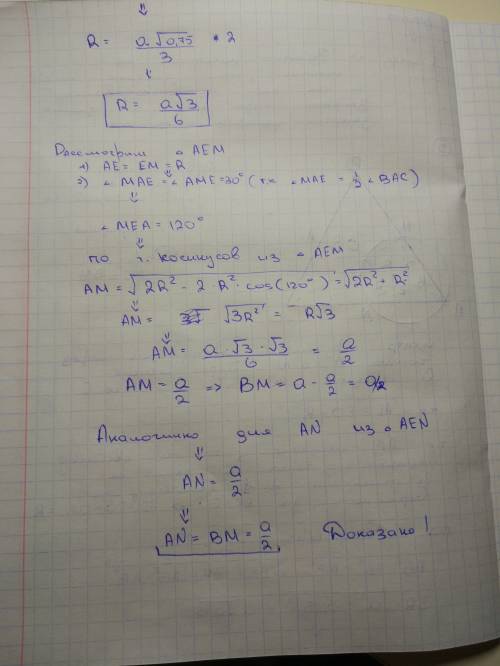 ⇓
R = a√0,75 / 3 • 2
⇓
R = a√3 / 6
Рассмотрим △ AEM
1) AE = EM = R
2) ∠ MAE = ∠ AME = 30° (т.к ∠ MAE = 1/2 ∠ BAC)
⇓
∠ MEA = 120°
⇓
по т. косинусов из △ AEM
AM = √2R² - 2 R² · cos(120°) = √2R² + R²
⇓
AM = √3R² = R√3
⇓
AM = a·√3·√3 / 6 = a/2
AM = a/2 => BM = a - a/2 = a/2
Аналогично для AN из △ AEN
⇓
AN = a/2
⇓
AN = BM = a/2 Доказано!